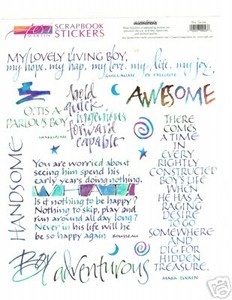 SCRAPBOOK
STICKERS
MY LOVELY LIVING BOY,
my hope, my hap, my love, my life, my joy.
O, 'TIS A
PARLOUS BOY
bold
quick
ingenious
forward
capable
AWESOME
HANDSOME
THERE
COMES A
TIME IN
EVERY
RIGHTLY
CONSTRUCTED
BOY'S LIFE
WHEN
HE HAS A
RAGING
DESIRE
TO GO
SOMEWHERE
AND DIG
FOR HIDDEN
TREASURE.
MARK TWAIN
You are worried about
seeing him spend his
early years doing nothing.
What!
Is it nothing to be happy?
Nothing to skip, play and
run around all day long?
Never in his life will he
be so happy again
ROUSSEAU
Boy
adventurous